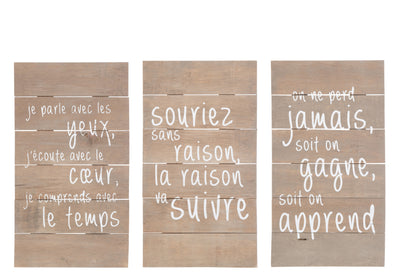 je parle avec les
yeux,
j'écoute avec le
cœur,
je comprends avec
le temps
souriez
sans
raison,
la raison
va suivre
on ne perd
jamais,
soit on
gagne,
soit on
apprend